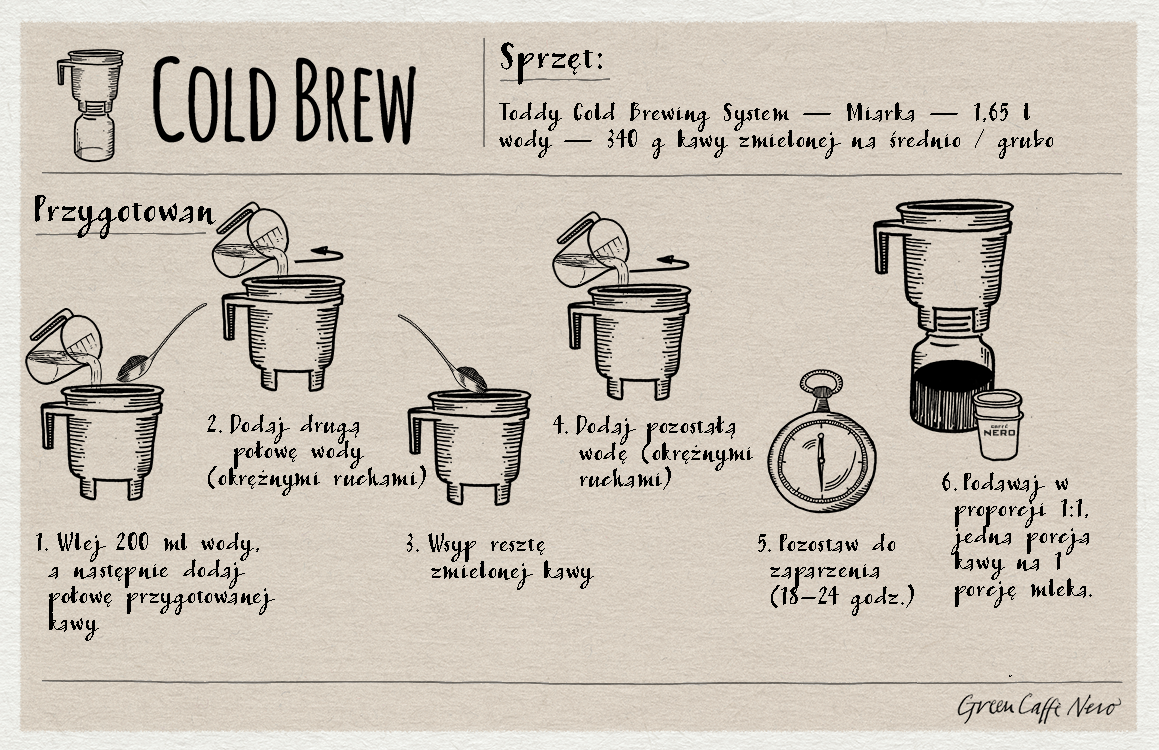 COLD BREW
Sprzęt:
Toddy Cold Brewing System — Miarka — 1,65 l
wody — 340 g kawy zmielonej na średnio / grubo
Przygotowan
1. Wlej 200 ml wody,
a następnie dodaj
połowę przygotowanej
kawy
2. Dodaj drugą
połowę wody
(okrężnymi ruchami)
3. Wsyp resztę
zmielonej kawy
4. Dodaj pozostałą
wodę (okrężnymi
ruchami)
5. Pozostaw do
zaparzenia
(18–24 godz.)
CAFFÈ
NERO
6. Podawaj w
proporcji 1:1,
jedna porcja
kawy na 1
porcję mleka.
Green Caffè Nero